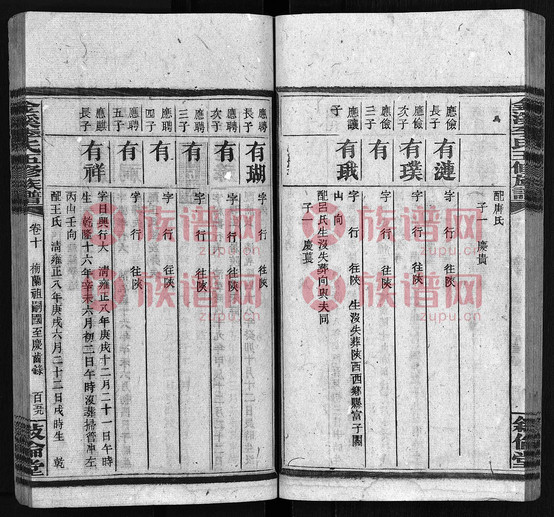 配唐氏
子一 慶貴
應儉長子 有漣 字 行 往陝
應儉次子 有璞 字 行 往陝
應儉三子 有 字 行 往陝
應議子 有珴 字 行 往陝 生沒失葬陝西西鄉縣富子關
山 向
配邑氏生沒失葬向與夫同
子一 慶蓂
應聘長子 有瑚 字 行 往陝
應聘次子 有 字 行 往陝
應聘三子 有 字 行 往陝
應聘四子 有 字 行 往陝
應聘五子 有 字 行 往陝
應麒長子 有祥 字日興行大 清雍正八年庚戌十二月二十一日午時
生 乾隆十六年辛未六月初二日午時沒葬掃管冲左
丙山壬向
配王氏 清雍正八年庚戌六月二十二日戌時生 乾
卷十 梅蘭祖嗣國至慶齒錄
敍倫堂
敍倫堂
族谱网
zupu.cn
族谱网
zupu.cn
族谱网
zupu.cn
族谱网
zupu.cn